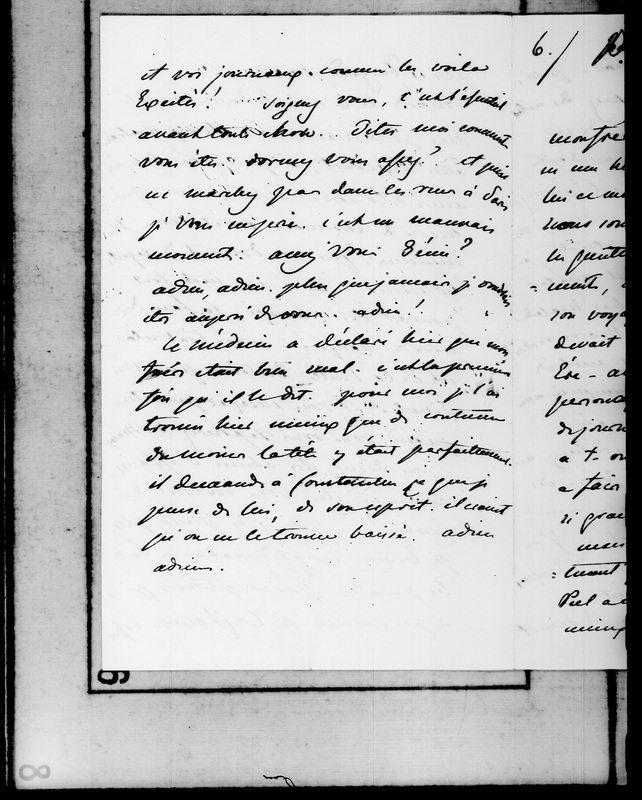 et vos journaux. comme les voilà
Excités! Soignez vous, c'est l'essentiel
avant toute chose. Dites moi comment
vous êtes. dormez vous assez? et puis
ne marchez pas dans les rues à Paris
je vous en prie. c'est un mauvais
moment. avez vous Génie?
adieu, adieu. plus que jamais je voudrais
être auprès de vous. adieu!
Le médecin a déclaré hier que mon
frère était bien mal. c'est la première
fois qu'il le dit. pour moi je l'ai
trouvé hier mieux que de coutume
du moins la tête y était parfaitement.
il demande à Constantin ce que je
pense de lui, de son esprit. il craint
qu'on ne le trouve baissé. adieu
adieu.
6./
montre
lui ce
nous son
la
ments,
son voya
devait
personn
dejeun
a t. on
a fair
si gra
mais
Peel a
mieux